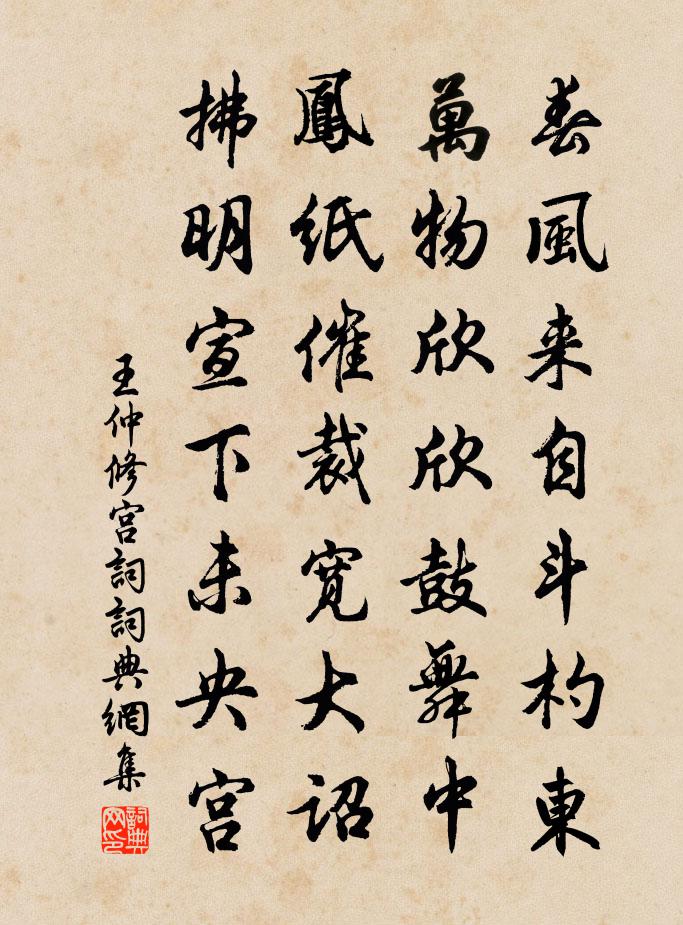 春風来自斗杓東
萬物欣欣鼓舞中
鳳紙催裁寬大詔
拂明宣下未央宮
王仲修宮詞詞典網集
詞典网印